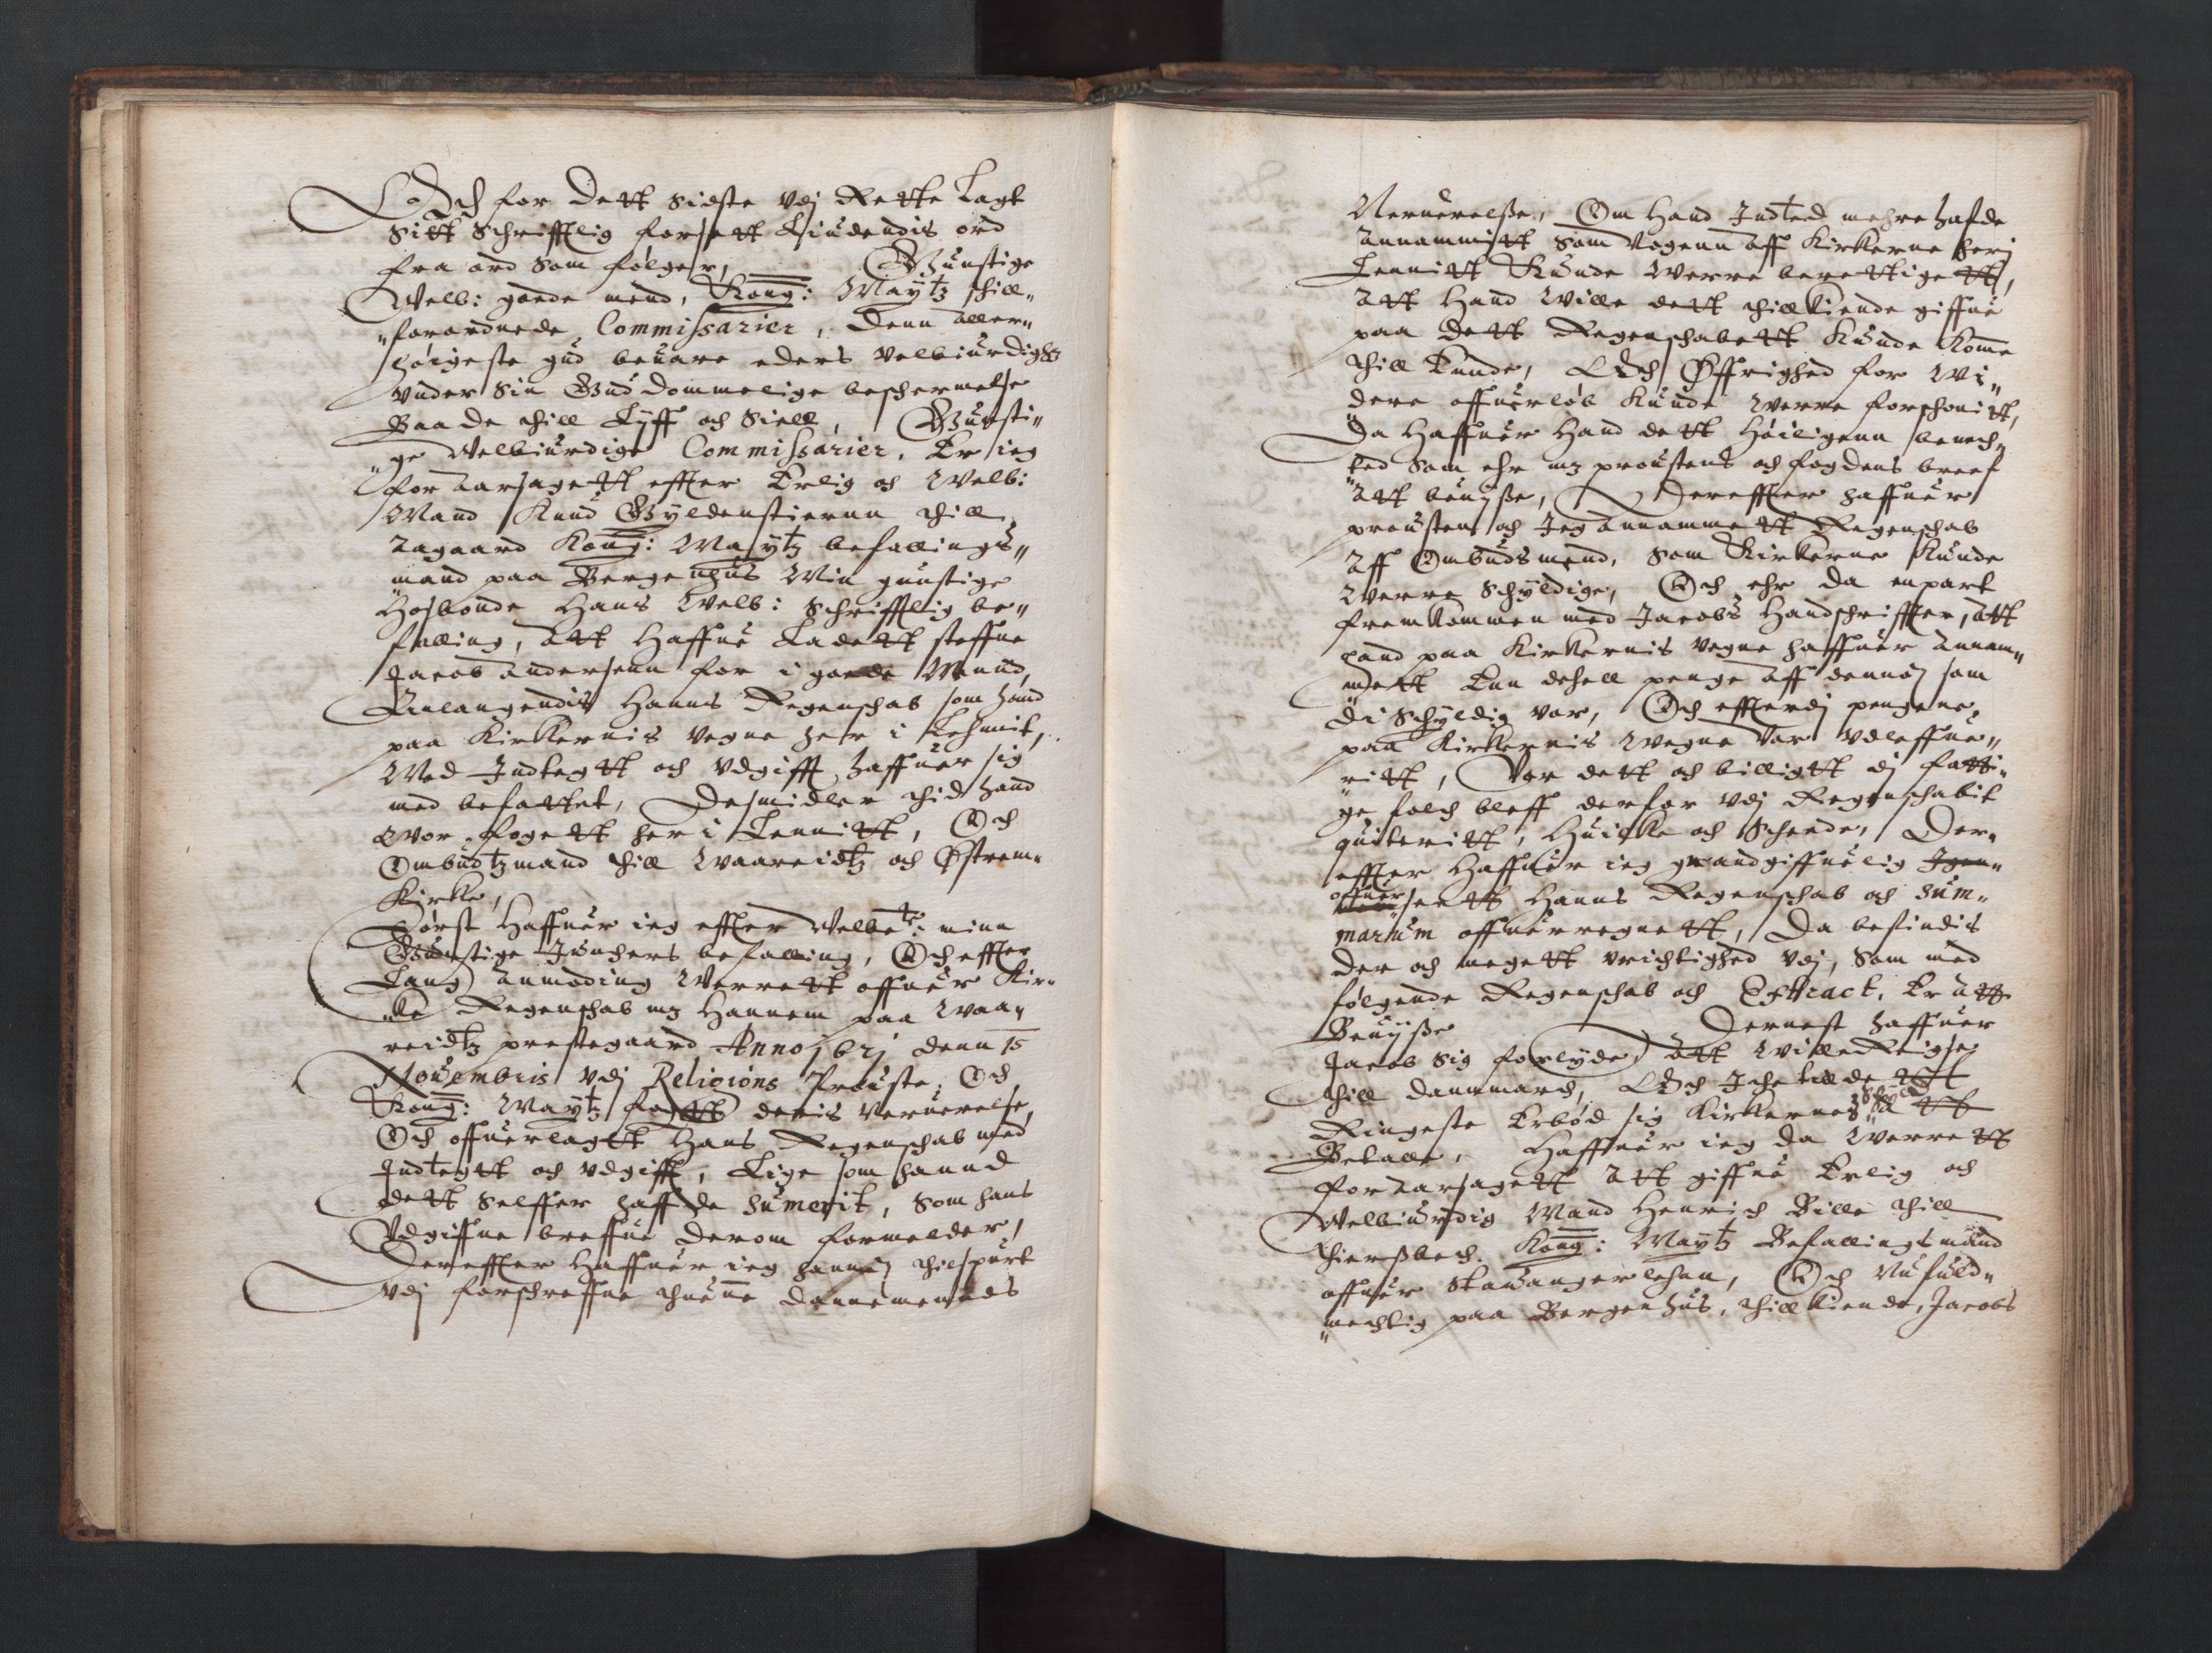 Och for dett sidste vdj Rette Lagt
sitt Schrifftlig forsett Liudendis ord
fra ord som følger, Gunstige
Welb: goede mend, Kong: Maytz thill„
„forordnede Commissarier, Denn aller„
høigeste gud beuare eders velbiurdighz
vnder sin Guddommelige beschermelse
Baade thill Lyff och Siell, Gunsti„
„ge Welbiurdige Commissarier, Er ieg
foraarsagett effter Erlig och Welb:
Mand Knud Gyldenstiernn thill
Aagaard Kong: Maytz befallings„
„mand paa Bergenhus Min gunstige
Hosbonde Hans Welb: Schrifftlig be„
falling, Att Haffue Ladett steffne
Jacob Andersenn for i goede Mennd,
Anlangendis Hanns Regenschab som hand
paa Kirkernis vegne her i Lehnit,
Med Indtegtt och vdgifft haffuer sig
med befattet, Desmidler thid hand
vor fogett her i Lennitt, Och
Ombudtzmand thill Waareidtz och Østrem„
Kirke,
Først Haffuer ieg effter Welbete: minn
Gunstige Junchers befalling, Och effter
Lang anmoding Werrett offuer Kir„
„ke Regenschab mz Hannem paa Waa„
reidtz prestegaard Anno 1621 denn 15
Nouembris vdj Religions Prouste, Och
Kong: Maytz fogett deris Neruerelse,
Och offuerlagtt Hans Regenschab med
Indtegtt och vdgifft, Lige som hannd
dett Selffer haffde sumerit, som hans
vdgiffne breffue derom formelder,
Dereffter Haffuer ieg hannem thilspurt
vdj forschreffne thuenne dannemends
Neruerelße, Om Hand Indted mehre hafde
annammitt som vogenn aff Kirkerne her j
Lennitt Kunde Werre berettigett,
Att Hand Wille dett thillkiende giffue
paa dett Regenschabett Kunde Kome
thill Ennde, Och Øffrighed for Wi„
dere offuerløb Kunde Werre forschonitt,
Da Haffuer Hand dett Høiligenn benech„
ted som ehr mz proustens och fogdens breef
att beuiße, Dereffter haffuer
prousten och Jeg annammett Regenschab
Aff Ombudsmend, som Kirkerne Kunde
Werre Schyldige, Och ehr da enpart
fremkommen med Jacobs Handschriffter, att
hand paa Kirkernis vegne haffuer annam„
mett Enn dehell penge aff dennom som
di Schyldig var, Och effterdj pengene,
paa Kirkernis Wegne var vdleffue„
ritt, Vor dett och billigtt dj fatti„
ge folch bleff derfor vdj Regenschabit
quiterit, Huicke och Scheede, Der„
effter Haffuer ieg grandgiffuelig Igen„
offuersett Hanns Regenschab och sum„
marium offuerregnett, Da befindis
der och megett vrichtighed vdj, som med
følgende Regenschab och Extract, Er att
Beuiße Dernest haffuer
Jacob sig forlyde, att Wille Reigse
thill Danmarch, Och Iche till dett
Ringeste Erbød sig Kirkernes Schyld att
Betalle, Haffuer ieg da Werrett
foraarsagett Att giffue Erlig och
Welbiurdig Mand Henrich Bille thill
thiersbech, Kong: Maytz Befallingsmand
offuer Stauanger lehnn, Och Nufuld„
„mechtig paa Bergenhus, thillkiende, Jacobs